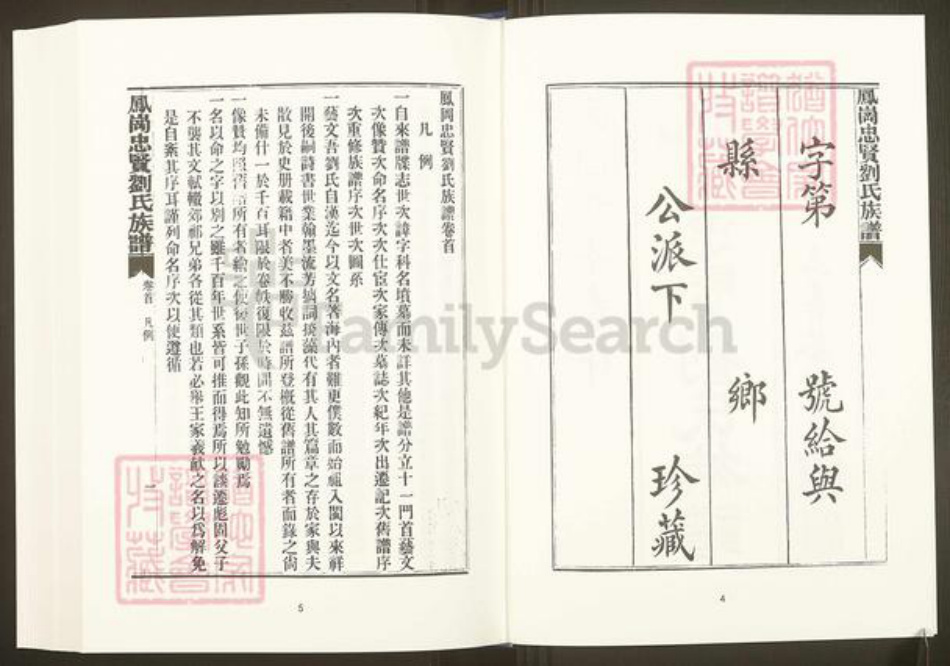 鳳崗忠賢劉氏族譜
字第 號給與
縣 鄉
公派下 珍藏
4
鳳岡忠賢劉氏族譜卷首
凡例
一自來譜牒志世次諱字科名墳墓而未詳其他是譜分立十一門首藝文
次像贊次命名序次次仕宦次家傳次墓誌次紀年次出遷記次舊譜序
次重修族譜序次世次圖系
一藝文吾劉氏自漢迄今以文名著海內者難更僕數而始祖入閩以來祥
開後嗣詩書世業翰墨流芳摛詞掞藻代有其人其篇章之存於家與夫
散見於史册載籍中者美不勝收茲譜所登槪從舊譜所有者而錄之尙
未備什一於千百耳限於卷帙復限於時間不無遺憾
一像贊均照舊譜所有者繪之使後世子孫觀此知所勉勵焉
一名以命之字以別之雖千百年世系皆可推而得焉所以談遷彪固父子
不襲其文軾轍郊祁兄弟各從其類也若必舉王家羲獻之名以爲解免
是自紊其序耳謹列命名序次以便遵循
鳳崗忠賢劉氏族譜
卷首 凡例
一
5
FamilySearch